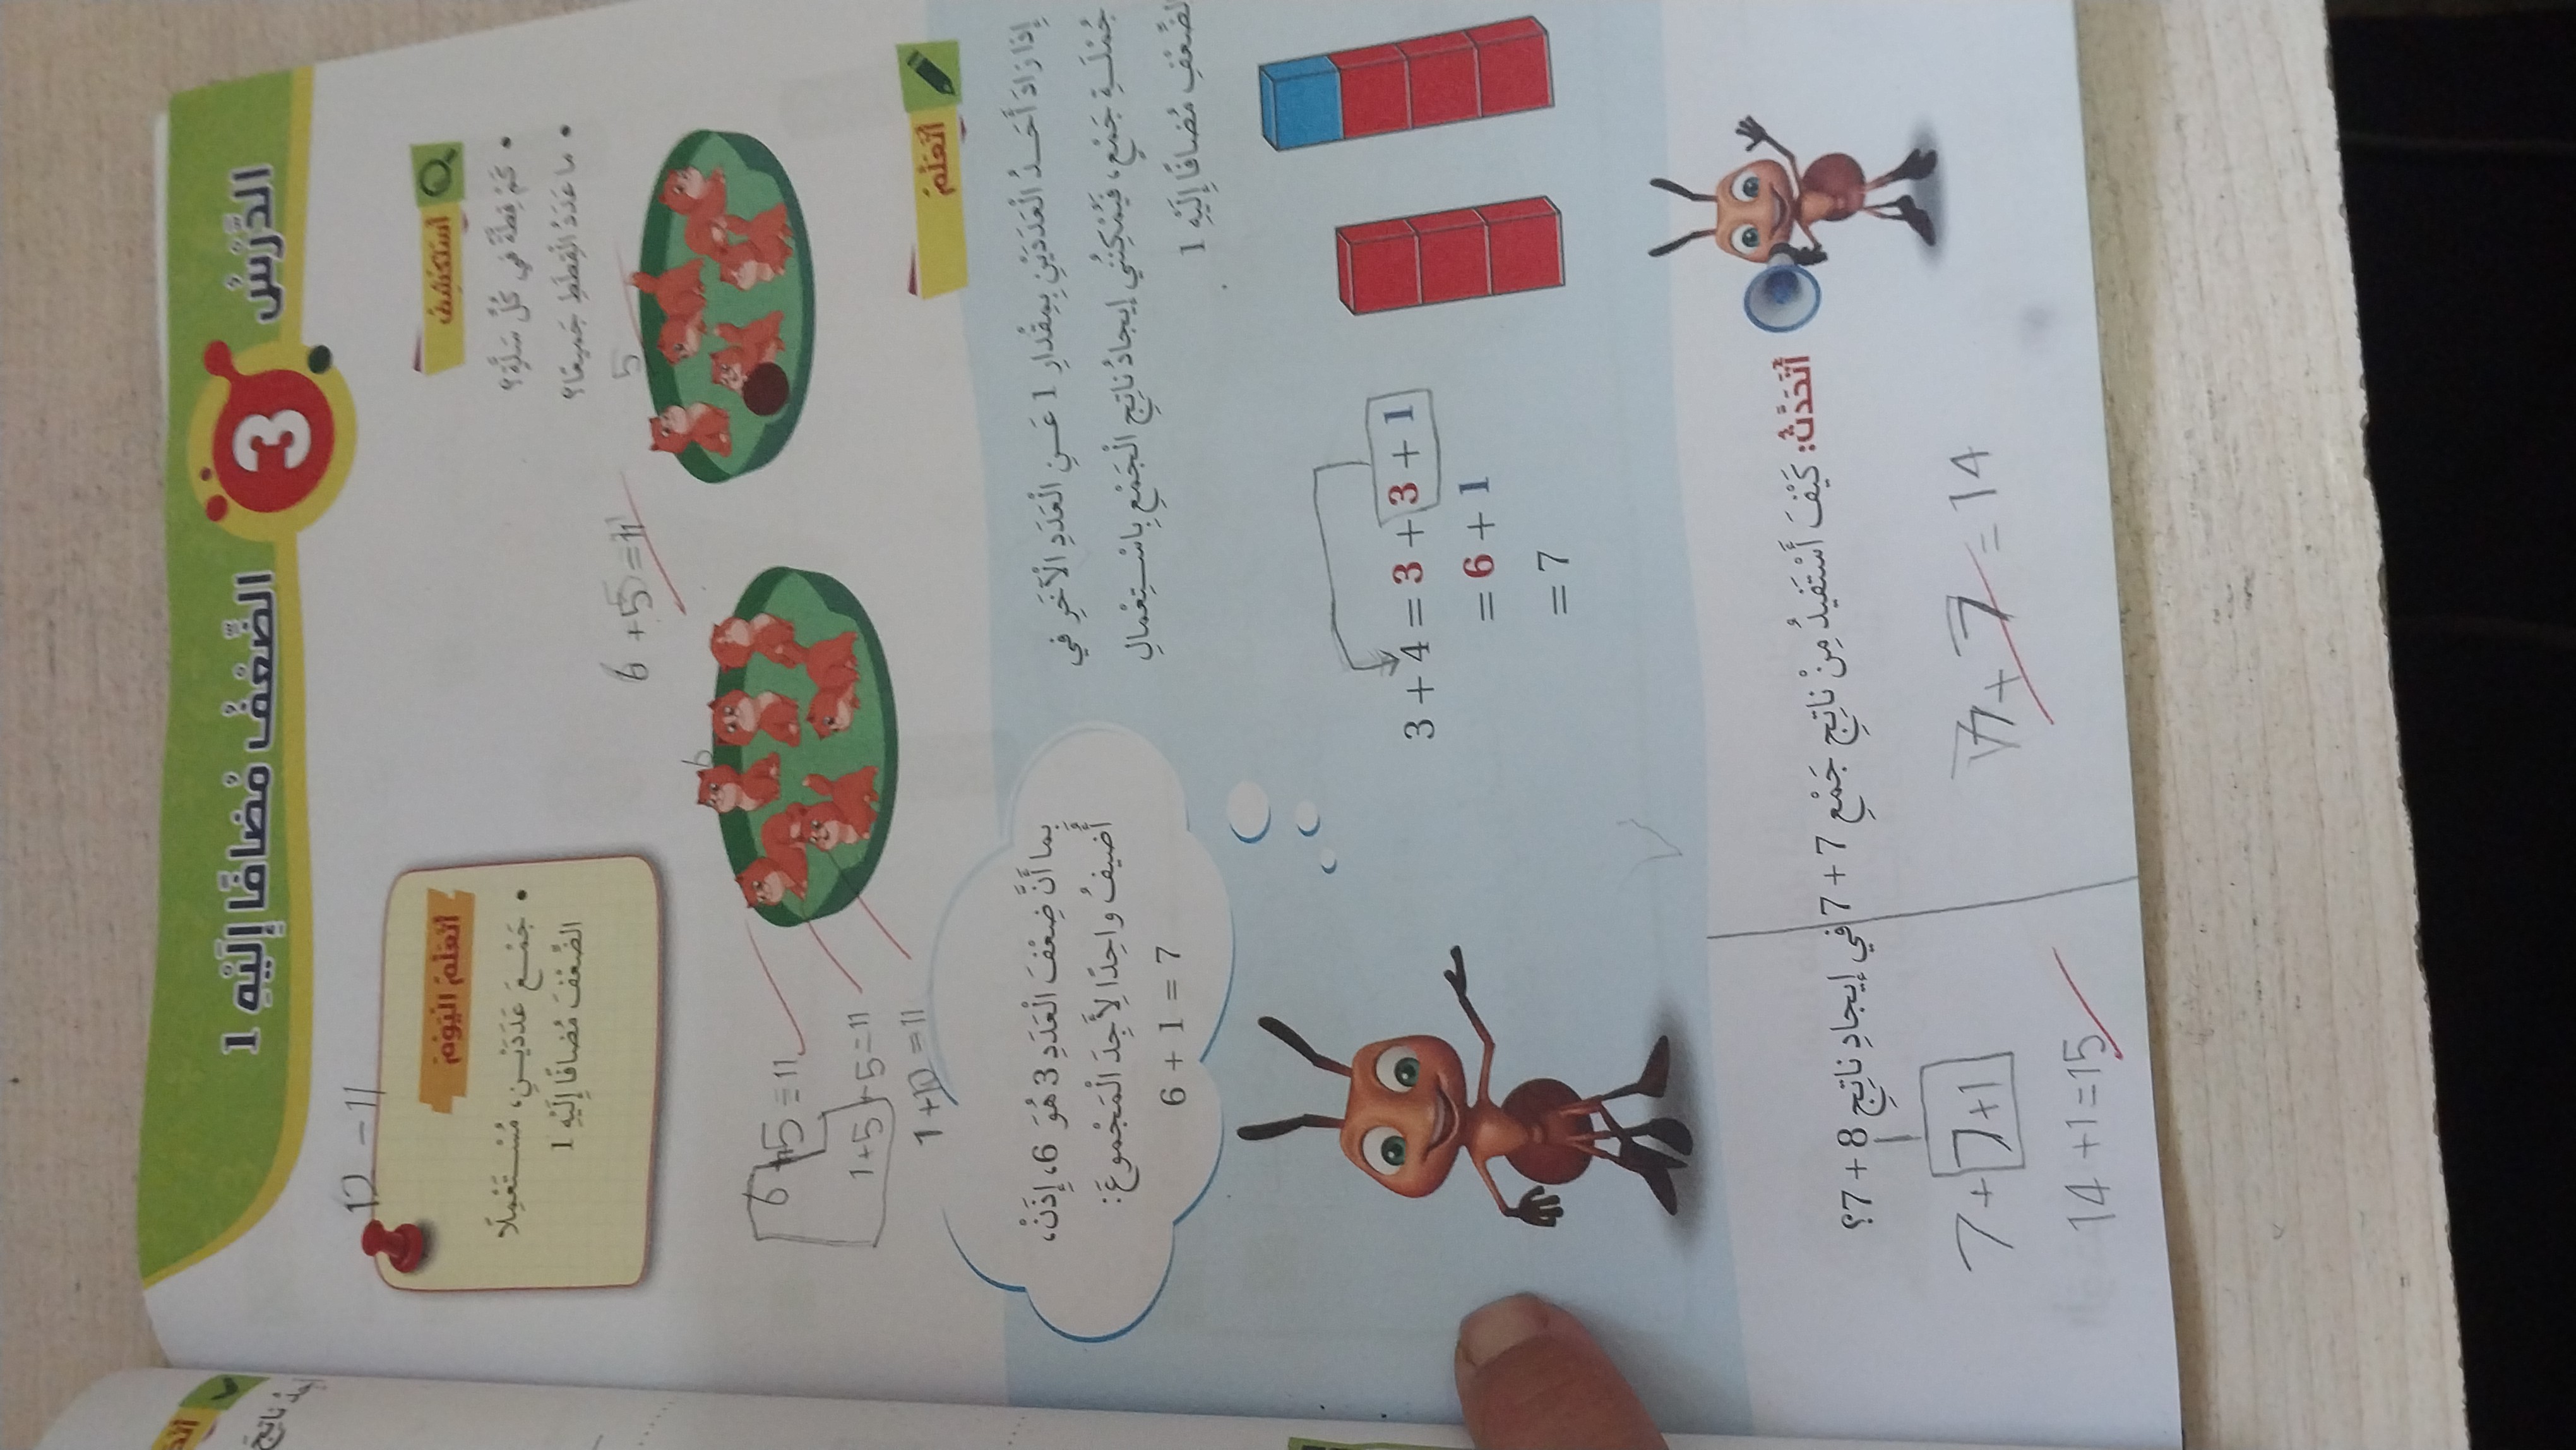 الدَّرْسُ 3 الضِّعْفُ مُضافًا إِلَيْهِ 1
أَسْتَكْشِفُ
كَمْ قِطَّةً في كُلِّ سَلَّةٍ؟
ما عَدَدُ الْقِطَطِ جَميعًا؟
12 - 11
أَتَعَلَّمُ الْيَوْمَ
جَمْعَ عَدَدَيْنِ، مُسْتَعْمِلًا
الضِّعْفَ مُضافًا إِلَيْهِ 1
5
6 + 5 = 11
6
6 + 5 = 11
1+5 + 5 = 11
1 + 10 = 11
أَتَعَلَّمُ
إِذا زادَ أَحَدُ الْعَدَدَيْنِ بِمِقْدارِ 1 عَنِ الْعَدَدِ الْآخَرِ في
جُمْلَةِ جَمْعٍ، فَيُمْكِنُني إيجادُ ناتِجِ الْجَمْعِ بِاسْتِعْمالِ
الضِّعْفِ مُضافًا إِلَيْهِ 1
بِما أَنَّ ضِعْفَ الْعَدَدِ 3 هُوَ 6، إِذَنْ،
أُضيفُ واحِدًا لِأَجِدَ الْمَجْموعَ:
6 + 1 = 7
3 + 4 = 3 + 3 + 1
= 6 + 1
= 7
أَتَحَدَّثُ: كَيْفَ أَسْتَفيدُ مِنْ ناتِجِ جَمْعِ 7 + 7 في إيجادِ ناتِجِ 8 + 7؟
7 + 7 = 14
7 + 7+1
14 + 1 = 15